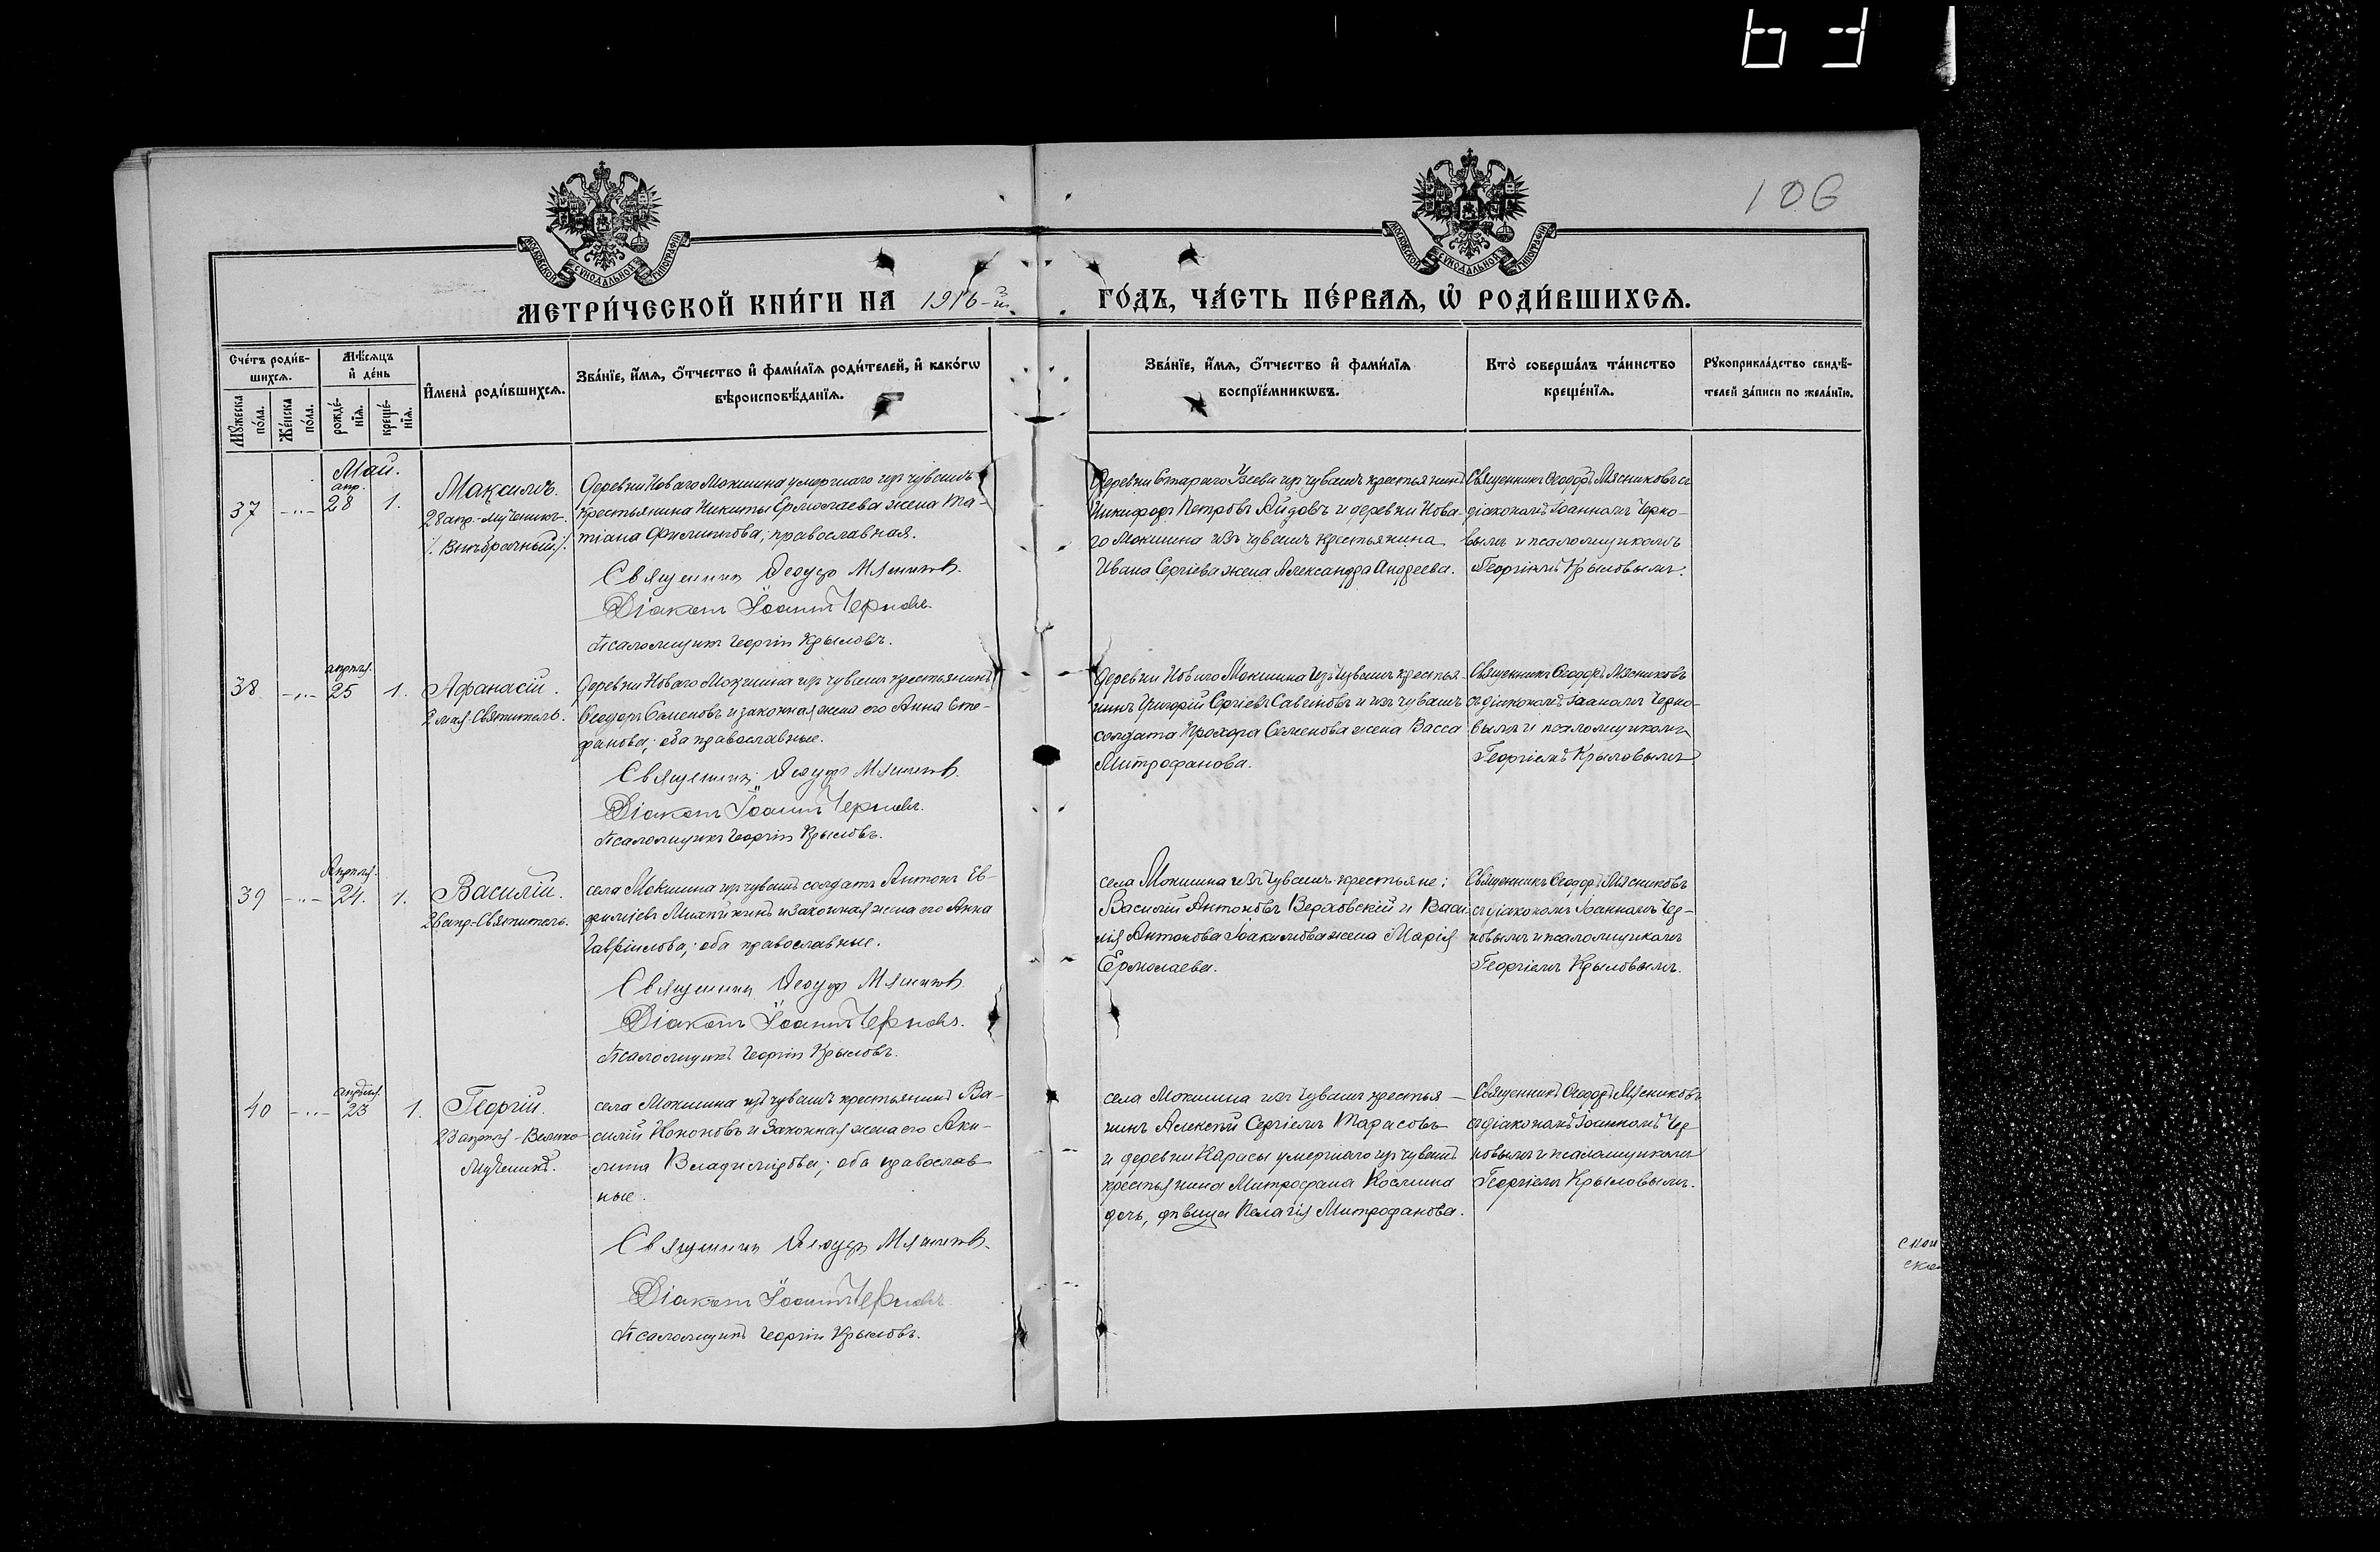 106
МОСКОВСКОЙ СУНОДАЛЬНОЙ ТИПОГРАФІИ
МОСКОВСКОЙ СУНОДАЛЬНОЙ ТИПОГРАФІИ
МЕТРИ́ЧЕСКОЙ КНИ́ГИ НА 1916-й ГО́ДЪ, ЧА́СТЬ ПЕ́РВАѦ, Ѡ҆ РОДИ́ВШИХСѦ.
Сче́тъ роди́вшихсѧ.
Мѣ́сѧцъ и҆ де́нь
Мꙋ́жеска по́ла.
Же́нска по́ла.
рожде́нїѧ.
креще́нїѧ.
И҆мена̀ роди́вшихсѧ.
Зва́нїе, и҆́мѧ, ѻ҆́тчество и҆ фами́лїѧ роди́телей, и҆ како́гѡ
вѣроисповѣ́данїѧ.
Зва́нїе, и҆́мѧ, ѻ҆́тчество и҆ фами́лїѧ
воспрїе́мникѡвъ.
Кто̀ соверша́лъ та́инство
креще́нїѧ.
Рꙋкоприкла́дство свидѣ́-
телей за́писи по жела́нїю.
Май.
37 -"- апр. 28 1.
Максимъ.
28 апр.-мученикъ.
/. Внѣбрачный /.
Деревни Новаго Мокшина умершаго изъ чувашъ
крестьянина Никиты Ермолаева жена Та-
тіана Филиппова; православная.
Священникъ Ѳеодоръ Мясниковъ.
Діаконъ Іоаннъ Черновъ.
Псаломщикъ Георгій Крыловъ.
Деревни Стараго Узеева изъ чувашъ крестьянинъ
Никифоръ Петровъ Айдовъ и деревни Нова-
го Мокшина изъ чувашъ крестьянина
Ивана Сергіева жена Александра Андреева.
Священникъ Ѳеодоръ Мясниковъ съ
діакономъ Іоанномъ Черно-
вымъ и псаломщикомъ
Георгіемъ Крыловымъ.
38 -"- апрѣля. 25 1.
Афанасій.
2 мая-Святитель.
Деревни Новаго Мокшина изъ чувашъ крестьянинъ
Ѳеодоръ Семеновъ и законная жена его Анна Сте-
фанова; оба православные.
Священникъ Ѳеодоръ Мясниковъ.
Діаконъ Іоаннъ Черновъ.
Псаломщикъ Георгій Крыловъ.
Деревни Новаго Мокшина изъ чувашъ крестья-
нинъ Григорій Сергіевъ Савиновъ и изъ чувашъ
солдата Прохора Семенова жена Васса
Митрофанова.
Священникъ Ѳеодоръ Мясниковъ
съ діакономъ Іоанномъ Черно-
вымъ и псаломщикомъ
Георгіемъ Крыловымъ.
39 -"- Апрѣля. 24. 1.
Василій.
26 апр-Святитель.
села Мокшина изъ чувашъ солдатъ Антонъ Ев-
фиміевъ и законная жена его Анна
Гавріилова; оба православные.
Священникъ Ѳеодоръ Мясниковъ.
Діаконъ Іоаннъ Черновъ.
Псаломщикъ Георгій Крыловъ.
села Мокшина изъ чувашъ крестьяне:
Василій Антоновъ Верховскій и Васи-
лія Антонова Іоакимова жена Марія
Ермолаева.
Священникъ Ѳеодоръ Мясниковъ
съ діакономъ Іоанномъ Чер-
новымъ и псаломщикомъ
Георгіемъ Крыловымъ.
40 -"- апрѣля. 23 1.
Георгій.
23 апрѣля-Велико-
мученикъ.
села Мокшина изъ чувашъ крестьянинъ Ва-
силій Кононовъ и законная жена его Аки-
лина Владимірова; оба православ
ные.
Священникъ Ѳеодоръ Мясниковъ.
Діаконъ Іоаннъ Черновъ.
Псаломщикъ Георгій Крыловъ.
села Мокшина изъ чувашъ крестья-
нинъ Алексѣй Сергіевъ Тарасовъ
и деревни Карасы умершаго изъ чувашъ
крестьянина Митрофана Космина
дочь, дѣвица Пелагія Митрофанова.
Священникъ Ѳеодоръ Мясниковъ
съ діакономъ Іоанномъ Чер
новымъ и псаломщикомъ
Георгіемъ Крыловымъ.